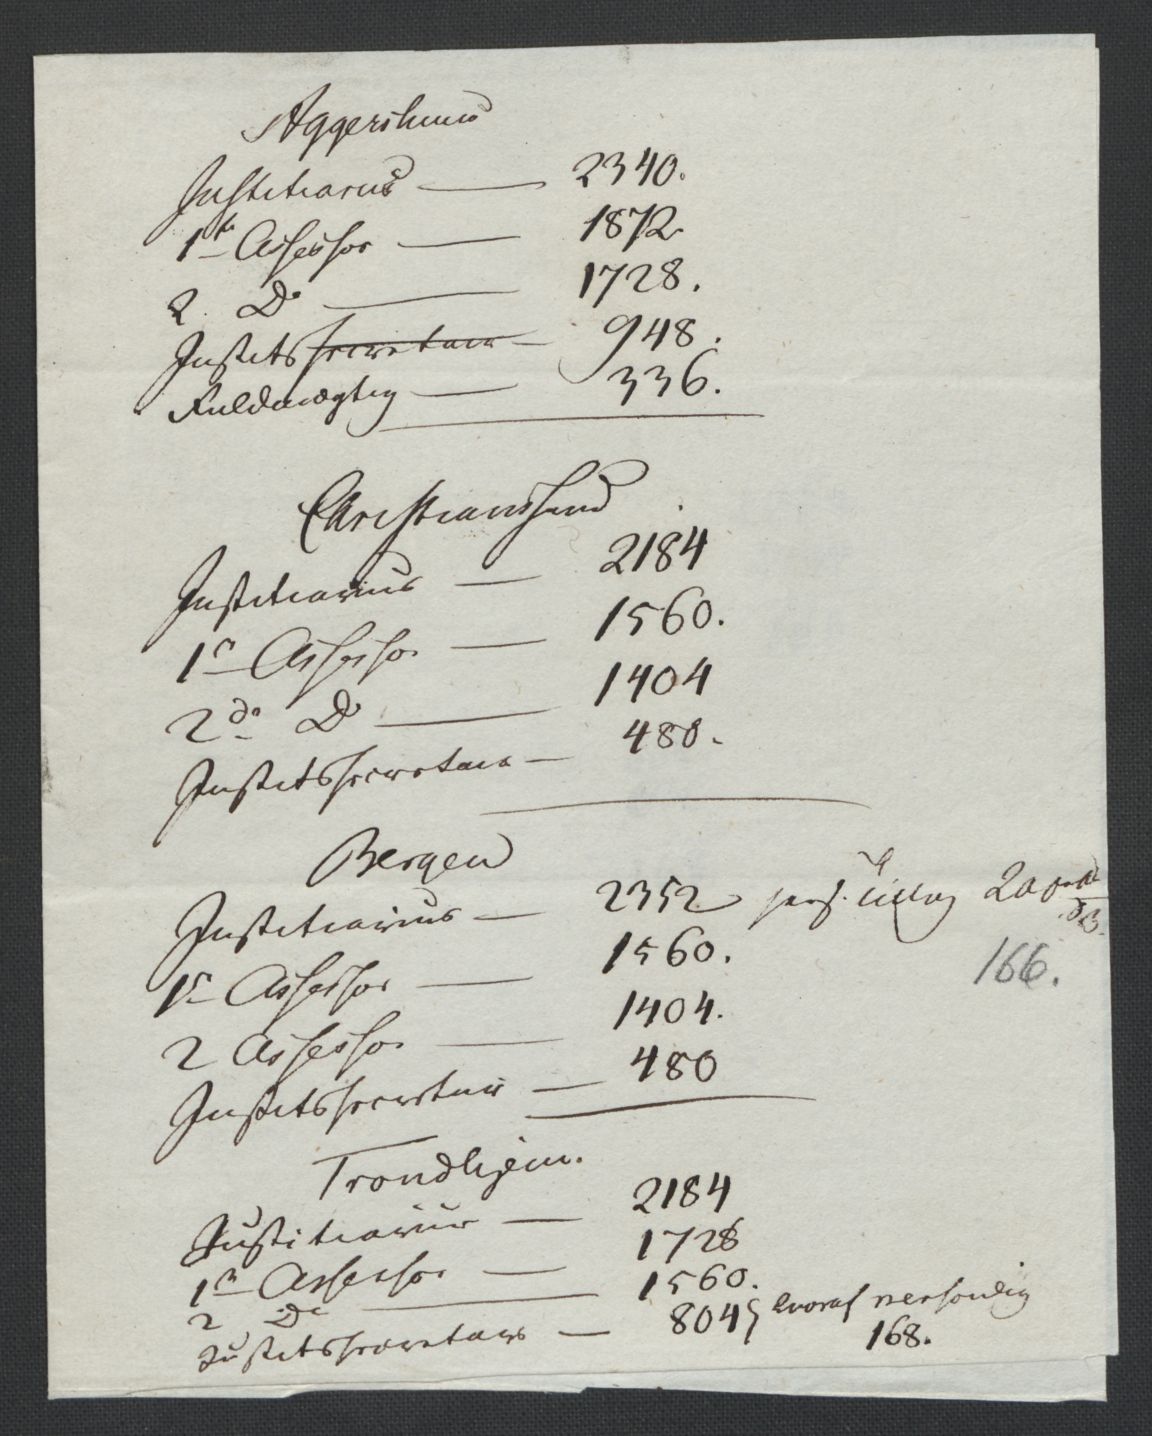 Aggershuus
Justitiarius — 2340.
1ste Assessor — 1872.
2. Do — 1728.
Justitssecretair — 948.
Fuldmægtig — 336.
Christianssand
Justitiarius — 2184
1r Assessor — 1560.
2do Do — 1404
Justitssecretair — 480.
Bergen
Justitiarius — 2352 pers. Tillæg 200
1r Assessor — 1560.
166.
2 Assessor — 1404.
Justitssecretair — 480
Trondhjem.
Justitiarius — 2184
1r Assessor — 1728
2 Do — 1560.
Justitssecretair — 804 hvoraf personlig
168.